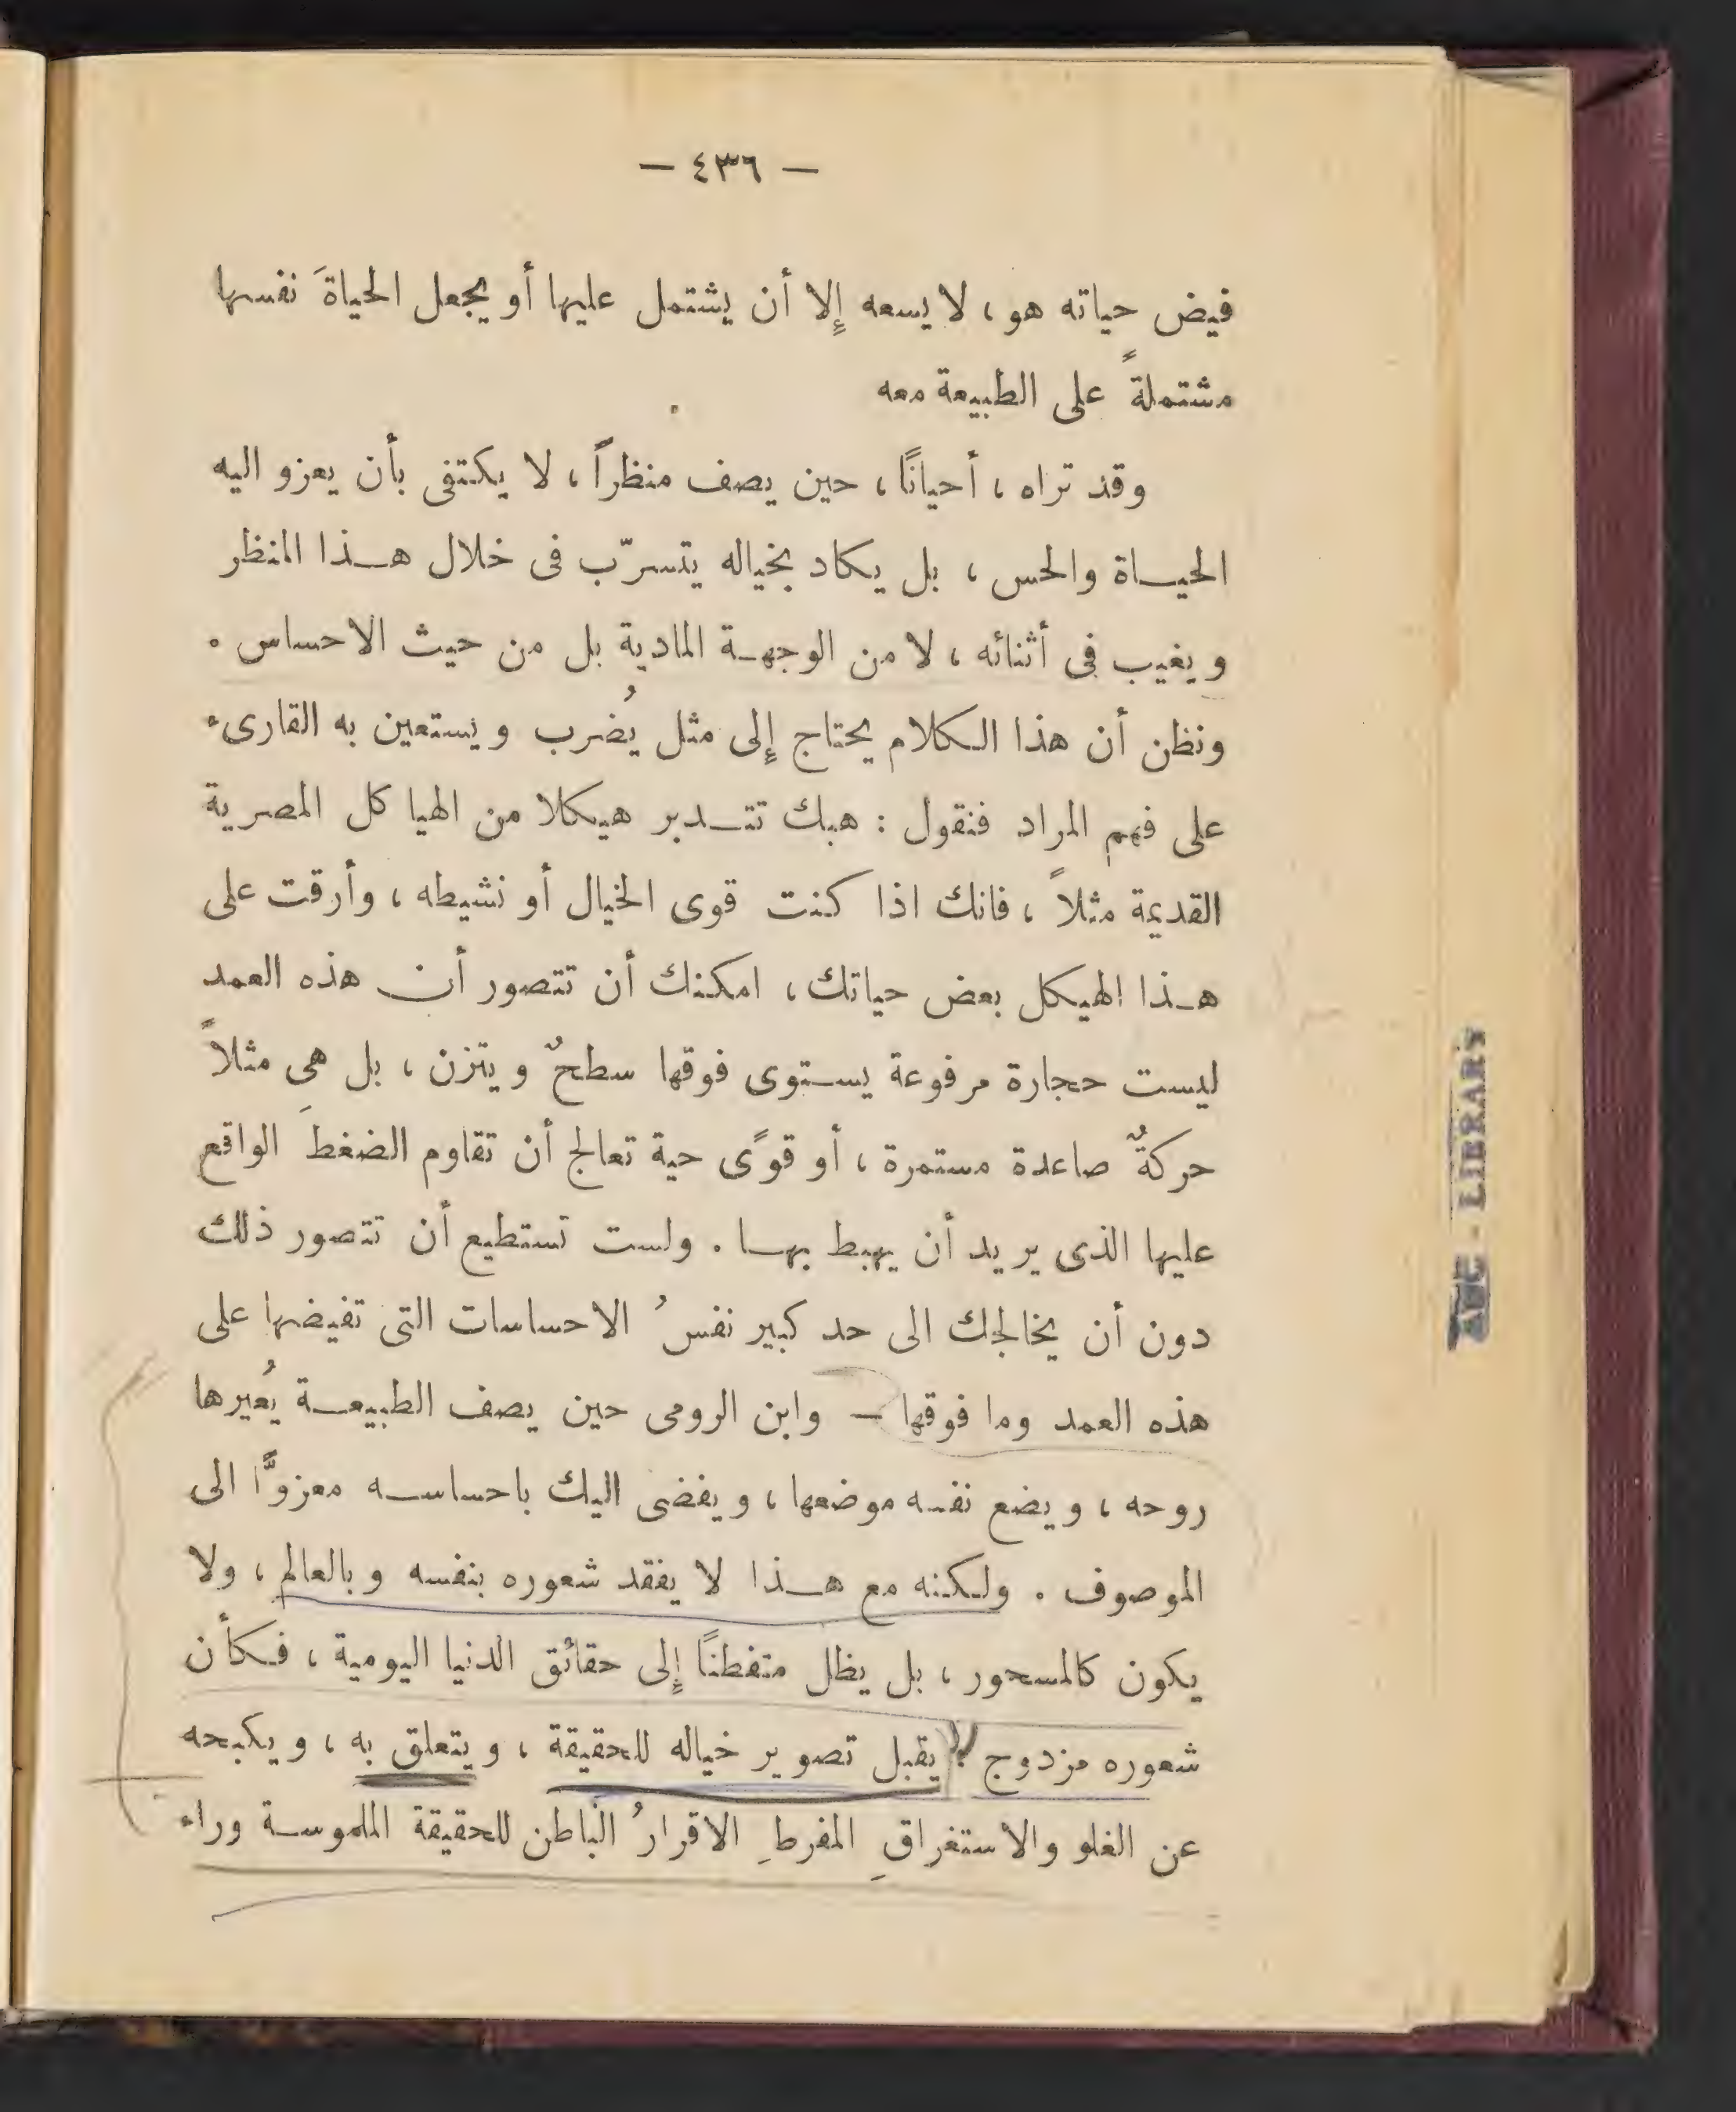 — ٤٣٦ —
فيض حياته هو ، لا يسعه إِلا أن يشتمل عليها أو يجعل الحياةَ نفسها
مشتملةً على الطبيعة معه
وقد تراه ، أحيانًا ، حين يصف منظراً ، لا يكتفى بأن يعزو اليه
الحيـاة والحس ، بل يكاد بخياله يتسرّب فى خلال هـذا المنظر
ويغيب فى أثنائه ، لا من الوجهـة المادية بل من حيث الاحساس .
ونظن أن هذا الكلام يحتاج إِلى مثل يُضرب ويستعين به القارىء
على فهم المراد فنقول : هبك تتـدبر هيكلا من الهياكل المصرية
القديمة مثلاً ، فانك اذا كنت قوى الخيال أو نشيطه ، وأرقت على
هـذا الهيكل بعض حياتك ، امكنك أن تتصور أن هذه العمد
ليست حجارة مرفوعة يسـتوى فوقها سطحٌ ويتزن ، بل هى مثلاً
حركةٌ صاعدة مستمرة ، أو قوًى حية تعالج أن تقاوم الضغطَ الواقع
عليها الذى يريد أن يهبط بهـا . ولست تستطيع أن تتصور ذلك
دون أن يخالجك الى حد كبير نفسُ الاحساسات التى تفيضها على
هذه العمد وما فوقها — وابن الرومى حين يصف الطبيعـة يُعيرها
روحه ، ويضع نفسه موضعها ، ويفضى اليك باحساسـه معزوًّا الى
الموصوف . ولكنه مع هـذا لا يفقد شعوره بنفسه وبالعالم ، ولا
يكون كالمسحور ، بل يظل متفطنًا إِلى حقائق الدنيا اليومية ، فـكأن
شعوره مزدوج لا يقبل تصوير خياله للحقيقة ، ويتعلق به ، ويكبحه
عن الغلو والاستغراقِ المفرطِ الاقرارُ الباطن للحقيقة الملموسـة وراء
AUC - LIBRARY